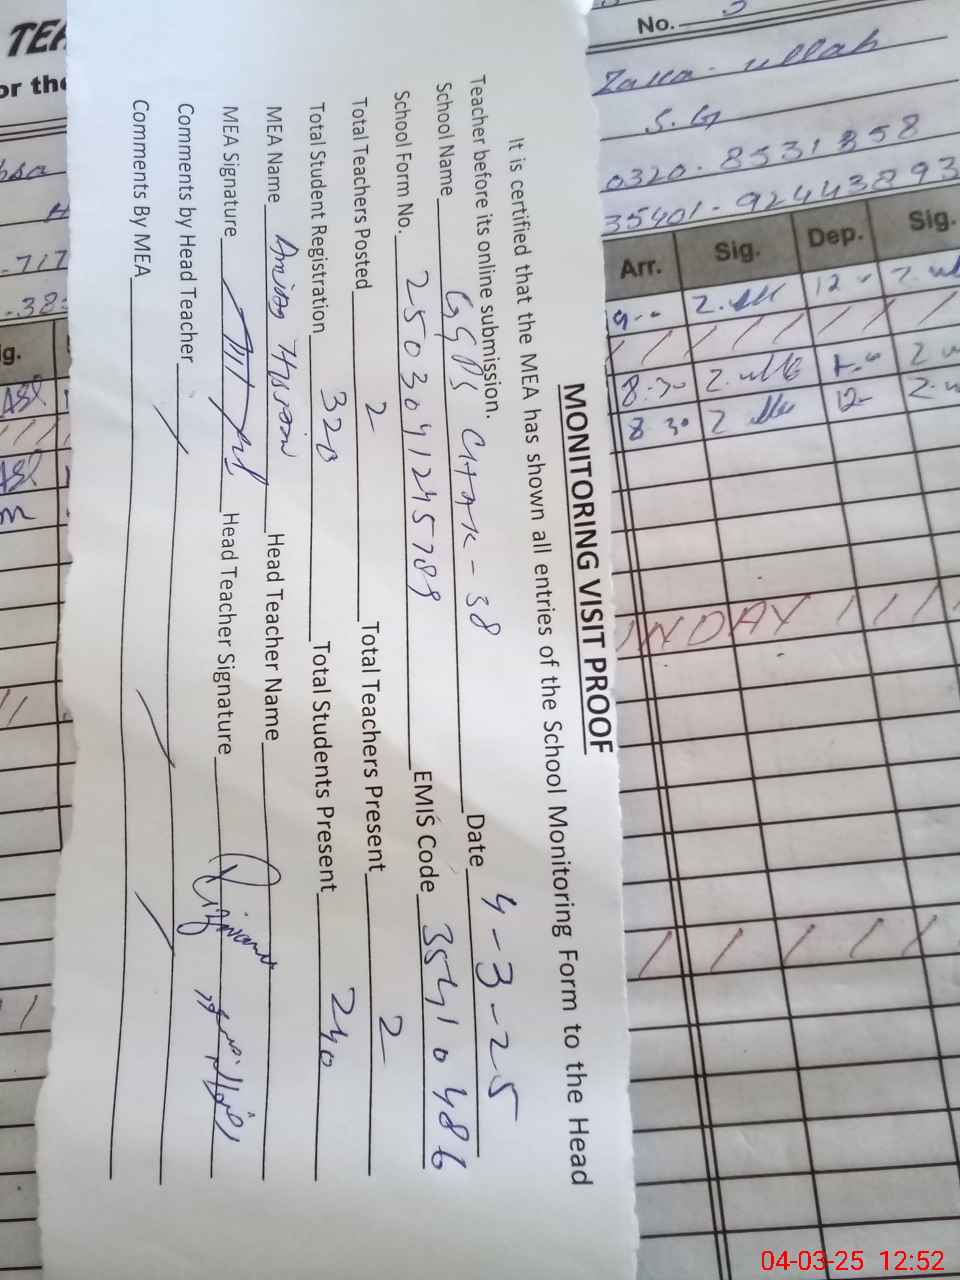 MONITORING VISIT PROOF
It is certified that the MEA has shown all entries of the School Monitoring Form to the Head
Teacher before its online submission.
School Name GGPS CHAK-38 Date 4-3-25
School Form No. 2503041245789 EMIS Code 35410486
Total Teachers Posted 2 Total Teachers Present 2
Total Student Registration 320 Total Students Present 240
MEA Name Hassan Head Teacher Name
MEA Signature Head Teacher Signature
Comments by Head Teacher
Comments By MEA
TEA
or the
No.
ullah
S.G
0320-8531858
35401-92443893
Arr. Sig. Dep. Sig.
9-- 12
8:30
8 30 12-
NDAY
.717
ig.
04-03-25 12:52